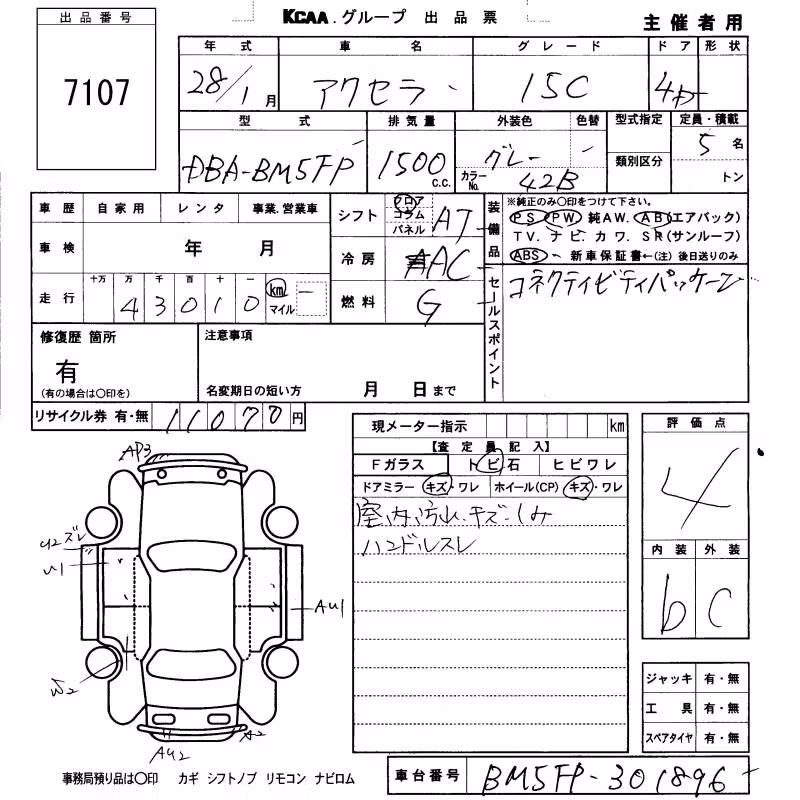 出品番号
KCAA.グループ 出品票
主催者用
7107
年式 車名 グレード ドア 形状
28/1月 アクセラ 15C 4D
型式 排気量 外装色 色替 型式指定 定員・積載
DBA-BM5FP 1500c.c. グレー 類別区分 5名
カラーNo. 42B トン
車歴 自家用 レンタ 事業.営業車
シフト フロア コラム パネル AT
装備品
※純正のみ〇印をつけて下さい。
PS PW 純AW. AB(エアバック)
TV. ナビ. カワ. SR(サンルーフ)
ABS 新車保証書←(注)後日送りのみ
車検 年 月
冷房 AAC
走行 十万 万 千 百 十 一
43010 km マイル
燃料 G
セールスポイント
コネクティビティパッケージ
修復歴 箇所
有
(有の場合は〇印を)
注意事項
名変期日の短い方 月 日まで
リサイクル券 有・無 11070円
現メーター指示 km
【査定員記入】
Fガラス トビ石 ヒビワレ
ドアミラー キズ・ワレ ホイール(CP) キズ・ワレ
室内汚れ.キズ.しみ
ハンドルスレ
評価点
4
内装 外装
b C
AP3
U2 ズレ
U1
AU1
W2
AU2
A2
ジャッキ 有・無
工具 有・無
スペアタイヤ 有・無
事務局預り品は〇印 カギ シフトノブ リモコン ナビロム
車台番号 BM5FP-301896